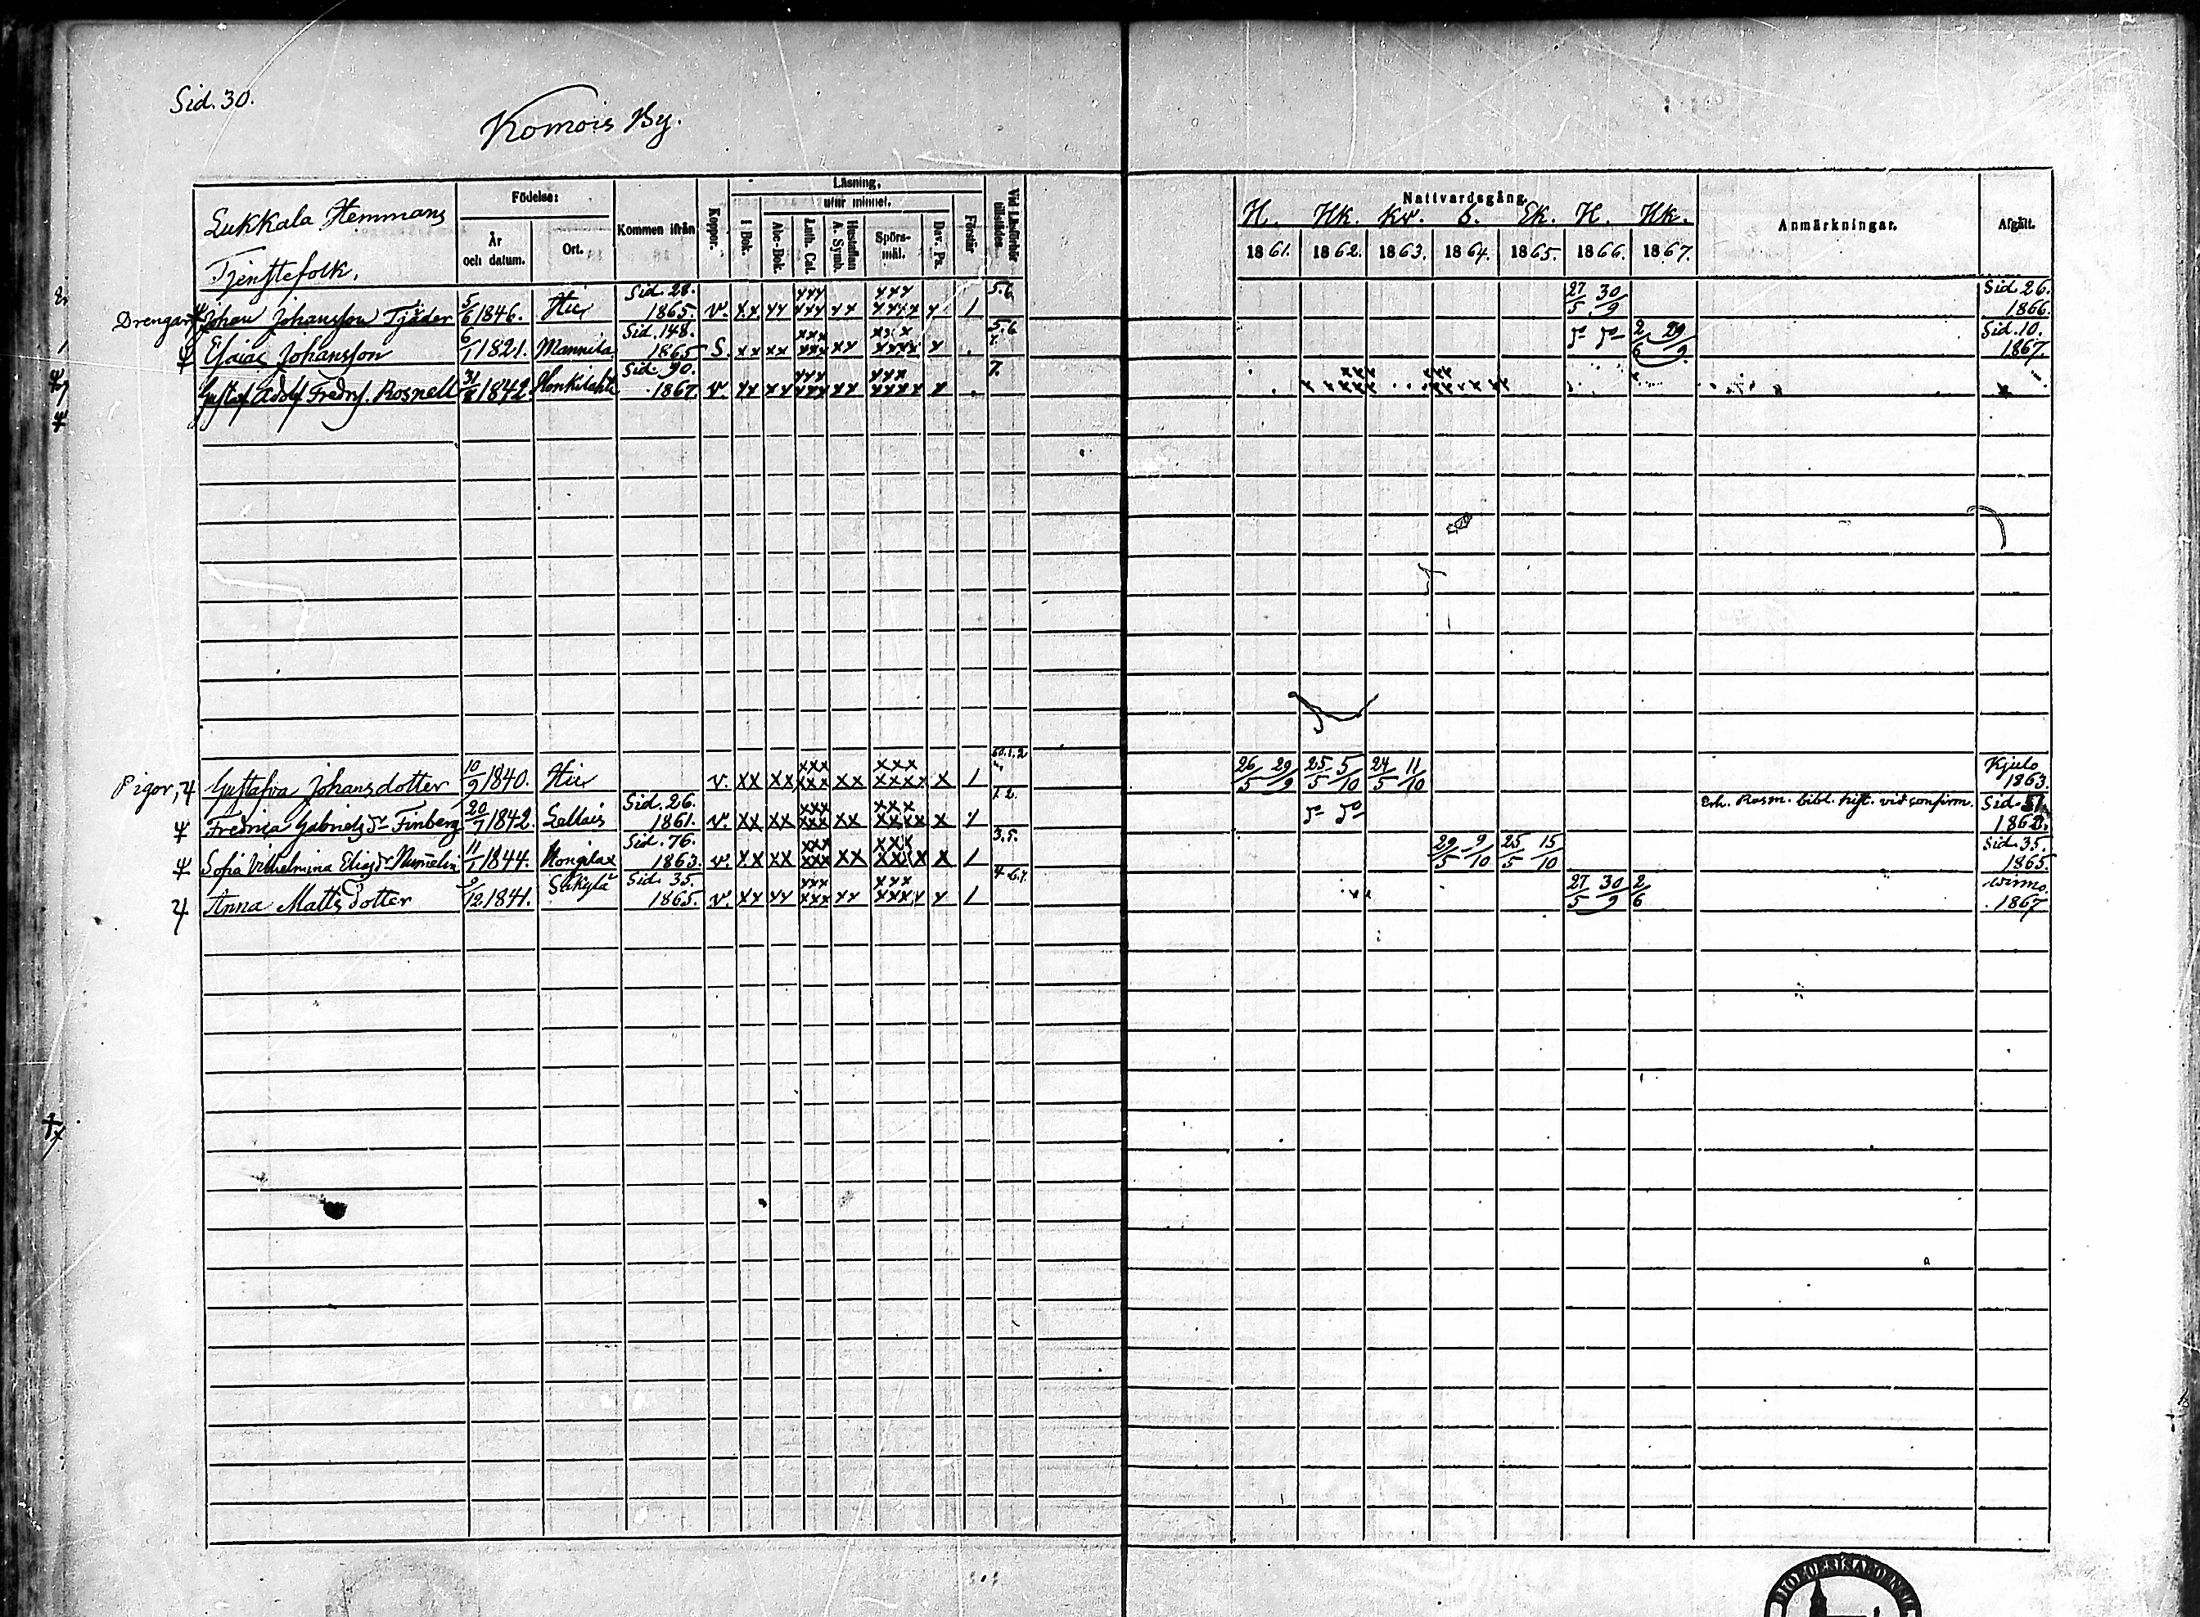 Sid. 30.
Komois By.
Lukkala Hemmans
Tjenstefolk.
Födelse:
År och datum.
Ort.
Kommen ifrån
Koppor.
Läsning,
utur minnet.
I Bok.
Abc-Bok.
Luth. Cat.
Hustaflan A. Symb.
Spörsmål.
Dav. Ps.
Förstår
Vid Läsförhör tillstädes.
Nattvardsgång.
H. Hk. Kr. S. Ek. H. Hk.
1861. 1862. 1863. 1864. 1865. 1866. 1867.
Anmärkningar.
Afgått.
Drengar, Johan Johansson Tjäder 5/6 1846. Hic Sid. 28. 1865. v. xx xx xxx xxx xx xxx xxxx x / 5.6 27/5 30/9 Sid. 26. 1866.
Esaias Johansson 6/1 1821. Mannila Sid. 148. 1865 S. xx xx xxx xxx xx xxx xxxx x 5.6 2/6 29/9 Sid. 10. 1867.
Gustaf Adolf Fredrf. Rosnell 1842 Honkilahti Sid. 90. 1867. v. xx xx xxx xxx xx xxx xxxx x 7.
Pigor, Gustafva Johansdotter 10/9 1840. Hic v. xx xx xxx xxx xx xxx xxxx x / 60.1.2 26/5 29/9 25/5 5/10 24/5 11/10 Kjulo 1863.
Fredrica Gabrielsdr Finberg 20/7 1842. Lellais Sid. 26. 1861. v. xx xx xxx xxx xx xxx xxxx x / 1 2. Erh. Rosm. bibl. hist. vid confirm. Sid. 1862.
Sofia Vilhelmina Eliasdr Nummelin 11/1 1844. Hongilax Sid. 76. 1863. v. xx xx xxx xxx xx xxx xxxx x / 3.5. 29/5 9/10 25/5 15/10 Sid. 35. 1865.
Anna Mattsdotter 9/12 1841. Säkylä Sid. 35. 1865. v. xx xx xxx xxx xx xxx xxxx x / 27/5 30/9 2/6 Wirmo. 1867